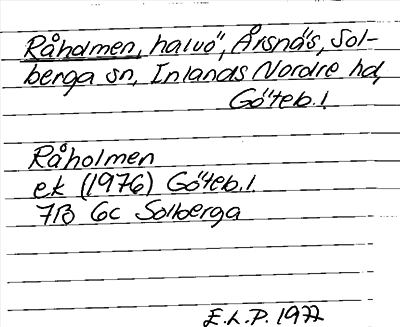 Råholmen, halvö, Årsnäs, Sol-
berga sn, Inlands Nordre hd,
Göteb.l.
Råholmen
ek (1976) Göteb.l.
7B 6c Solberga
E.L.P. 1977